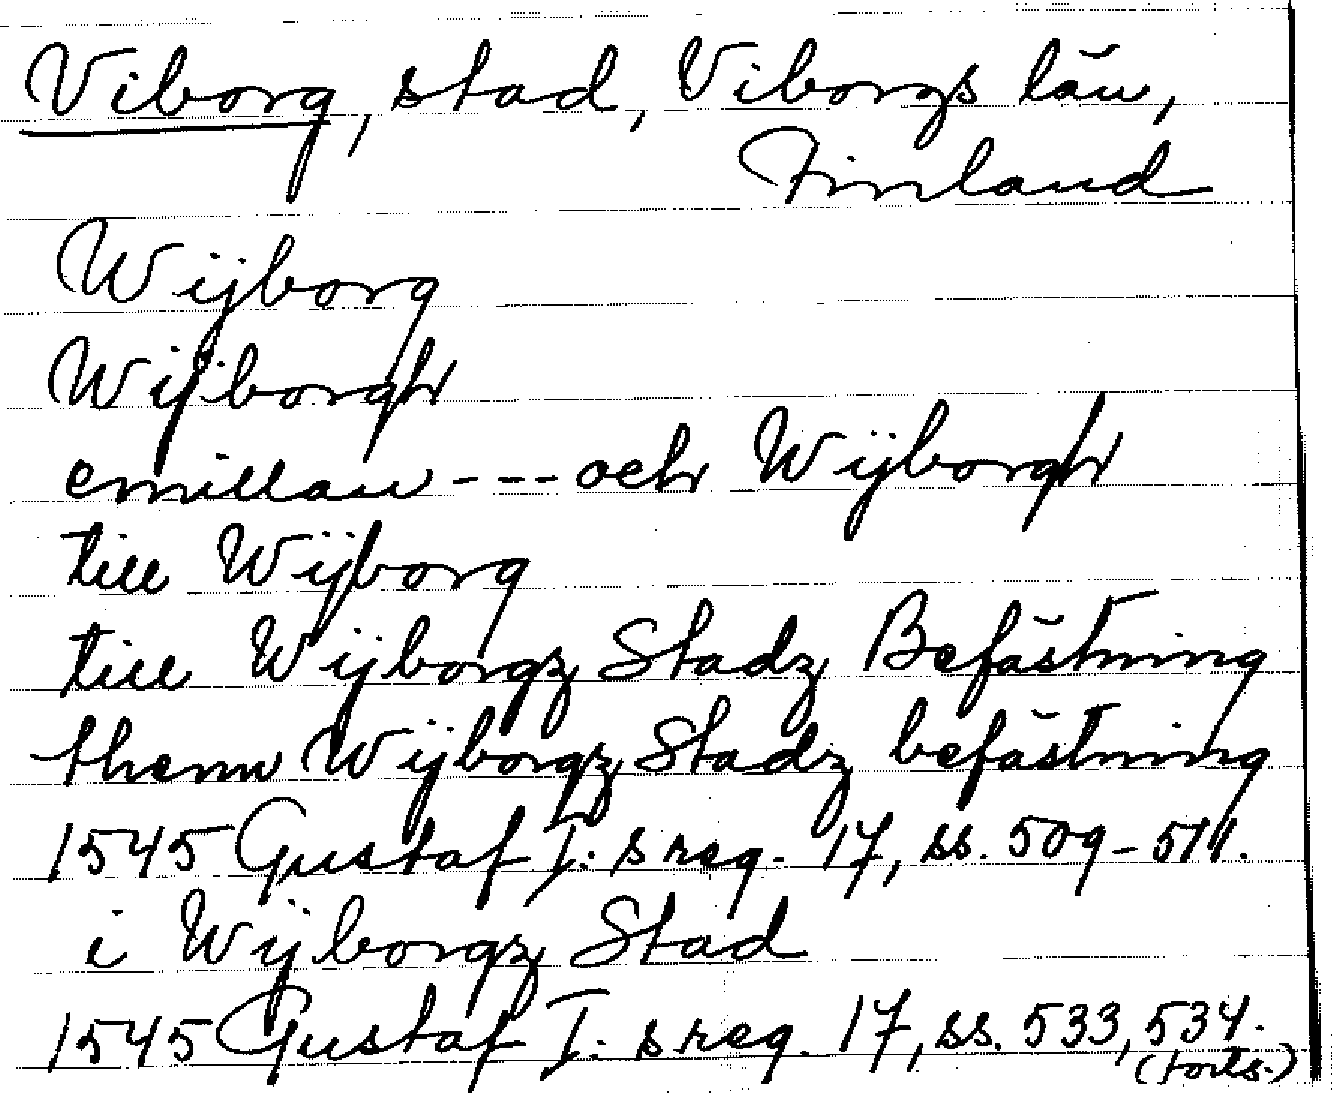 Viborg, stad, Viborgs län,
Finland
Wijborg
Wijborgh
emillan --- och Wijborgh
till Wijborg
till Wijborgz Stadz Befästning
thenn Wijborgz Stadz befästning
1545 Gustaf I:s reg. 17, ss. 509-511.
i Wijborgz Stad
1545 Gustaf I:s reg. 17, ss. 533, 534.
(forts.)